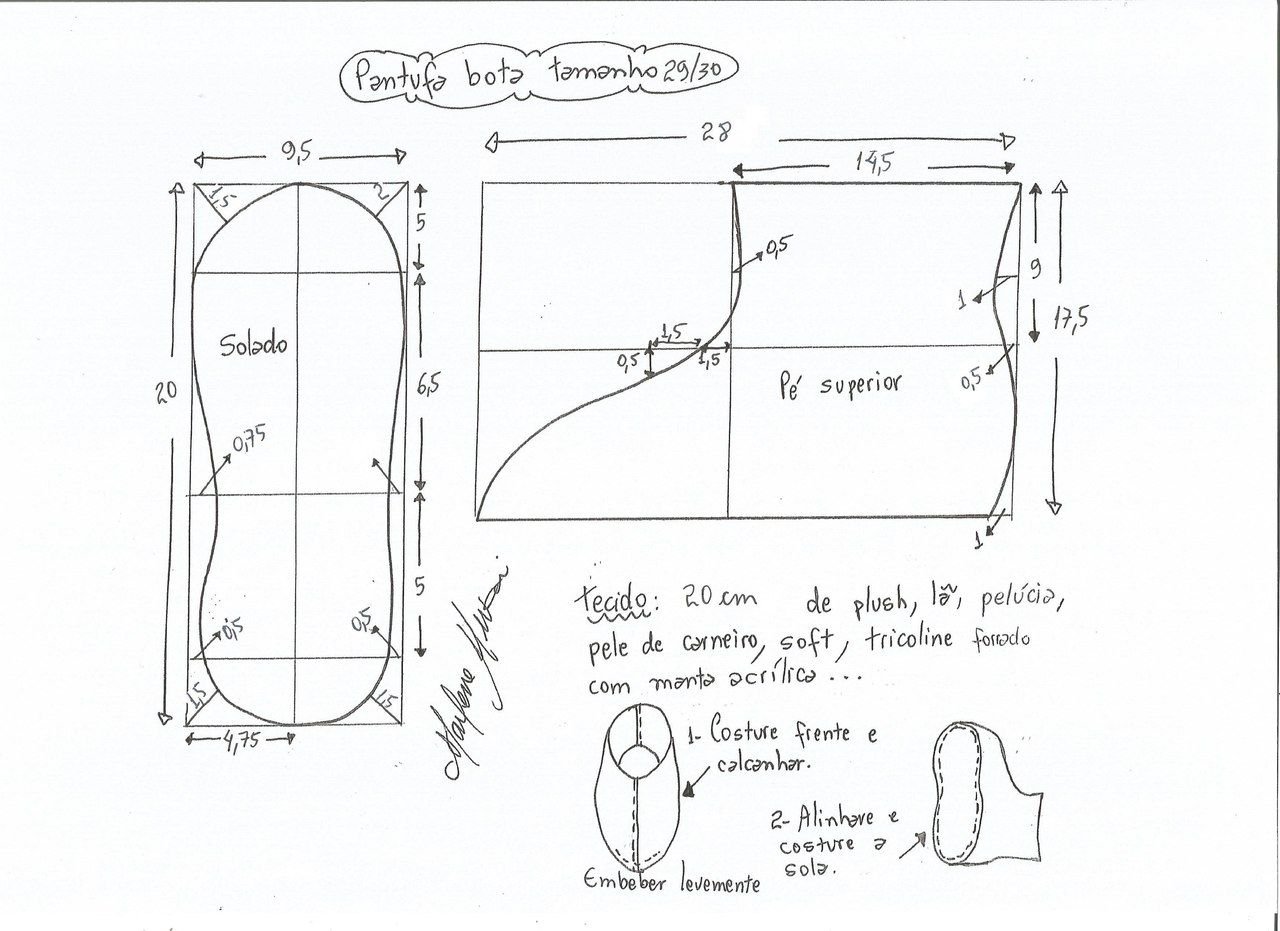 Pantufa bota tamanho 29/30
9,5
1,5
2
5
20
Solado
6,5
0,75
5
0,5
0,5
1,5
1,5
4,75
28
14,5
0,5
9
1
17,5
1,5
0,5
1,5
Pé superior
0,5
1
tecido: 20 cm de plush, lã, pelúcia,
pele de carneiro, soft, tricoline forrado
com manta acrílica...
1- Costure frente e
calcanhar.
2- Alinhave e
costure a
sola.
Embeber levemente